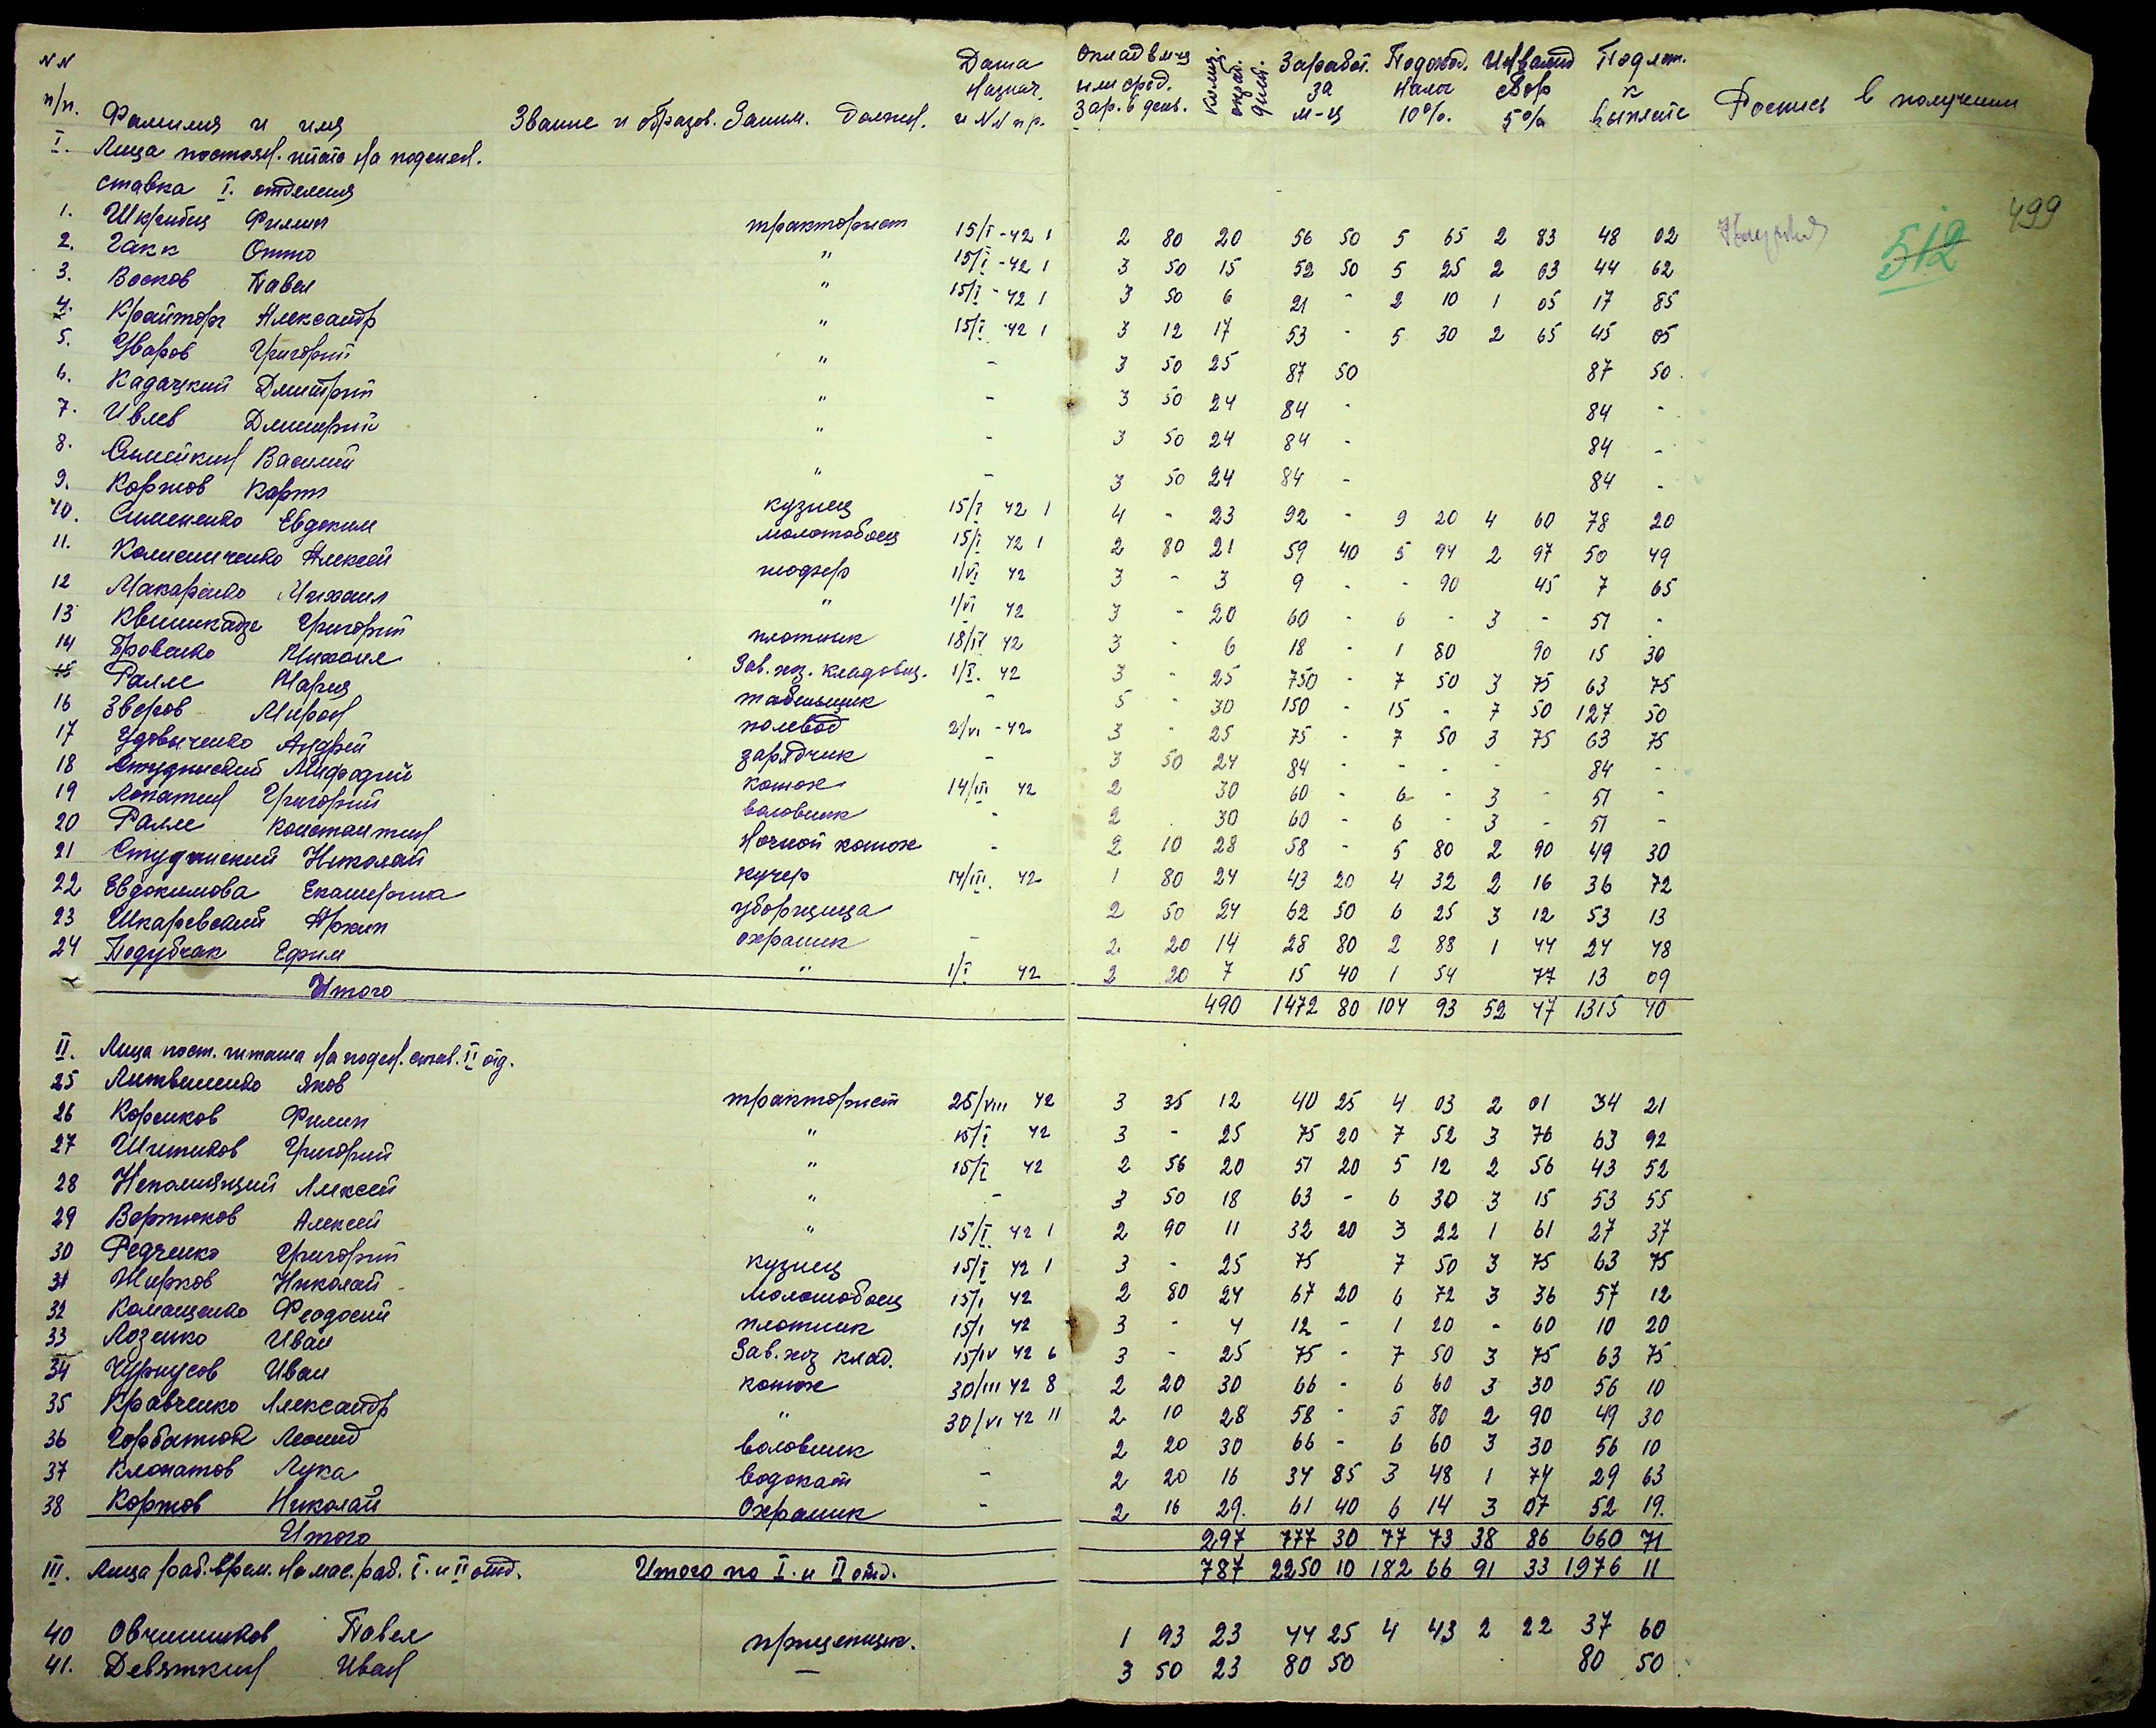 NN п/п. Фамилия и имя Звание и образов. Заним. должн. Дата назнач. и NN пр. Оклад в м-ц или сред. зар. в день. Колич. отраб. дней. Заработ. за м-ц Подоход. налог 10%. Инвалид сбор 5% Подлеж. к выплате Роспись в получении
499
512
I. Лица постоян. штата на поденн.
ставка I. отделения
1. Шкрибец Филипп тракторист 15/I-42 1 2 80 20 56 50 5 65 2 83 48 02
2. Гакк Отто " 15/I-42 1 3 50 15 52 50 5 25 2 63 44 62
3. Восков Павел " 15/I-42 1 3 50 6 21 - 2 10 1 05 17 85
4. Крайторг Александр " 15/I-42 1 3 12 17 53 - 5 30 2 65 45 05
5. Уваров Григорий " - 3 50 25 87 50 87 50.
6. Кадацкий Дмитрий " - 3 50 24 84 - 84 -
7. Ивлев Дмитрий " - 3 50 24 84 - 84 -
8. Семейкин Василий " - 3 50 24 84 - 84 -
9. Коржов Карп кузнец 15/I 42 1 4 - 23 92 - 9 20 4 60 78 20
10. Симененко Евдоким молотобоец 15/I 42 1 2 80 21 59 40 5 94 2 97 50 49
11. Колесниченко Алексей шофер 1/VI 42 3 - 3 9 - - 90 45 7 65
12 Макаренко Михаил " 1/VI 42 3 - 20 60 - 6 - 3 - 51 -
13 Квиникадзе Григорий плотник 18/IV 42 3 - 6 18 - 1 80 90 15 30
14 Бровенко Михаил Зав. хоз. кладовщ. 1/I. 42 3 - 25 750 - 7 50 3 75 63 75
15 Ралле Мария табельщик - 5 - 30 150 - 15 - 7 50 127 50
16 Зверов Мирон полевод 2/VI-42 3 - 25 75 - 7 50 3 75 63 75
17 Удовыченко Андрей зарядчик - 3 50 24 84 - - - - 84 -
18 Студинский Мифодий конюх 14/III 42 2 30 60 - 6 - 3 - 51 -
19 Лопатин Григорий воловник - 2 . 30 60 - 6 - 3 - 51 -
20 Ралле Константин Ночной конюх - 2 10 28 58 - 5 80 2 90 49 30
21 Студинский Николай кучер 14/III. 42 1 80 24 43 20 4 32 2 16 36 72
22 Евдокимова Екатерина уборщица 2 50 24 62 50 6 25 3 12 53 13
23 Шкаревский Архип охраник - 2 20 14 28 80 2 88 1 44 24 48
24 Подубчак Ефим " 1/I 42 2 20 7 15 40 1 54 77 13 09
Итого 490 1472 80 104 93 52 47 1315 40
II. Лица пост. штата на поден. став. II отд.
25 Литвиненко Яков тракторист 25/VIII 42 3 35 12 40 25 4 03 2 01 34 21
26 Корсиков Филип " 15/I 42 3 - 25 75 20 7 52 3 76 63 92
27 Шитиков Григорий " 15/I 42 2 56 20 51 20 5 12 2 56 43 52
28 Непомнящий Алексей " - 3 50 18 63 - 6 30 3 15 53 55
29 Вертюков Алексей " 15/I 42 1 2 90 11 32 20 3 22 1 61 27 37
30 Редченко Григорий кузнец 15/I 42 1 3 - 25 75 7 50 3 75 63 75
31 Жирков Николай молотобоец 15/I 42 2 80 24 67 20 6 72 3 36 57 12
32 Комащенко Феодосий плотник 15/I 42 3 - 4 12 - 1 20 - 60 10 20
33 Лозенко Иван Зав. хоз клад. 15/IV 42 6 3 - 25 75 - 7 50 3 75 63 75
34 Чурпусов Иван конюх 30/III 42 8 2 20 30 66 - 6 60 3 30 56 10
35 Кравченко Александр " 30/VI 42 11 2 10 28 58 - 5 80 2 90 49 30
36 Горбатюк Леонид воловник 2 20 30 66 - 6 60 3 30 56 10
37 Клопатов Лука водокат - 2 20 16 34 85 3 48 1 74 29 63
38 Коржов Николай Охраник - 2 16 29. 61 40 6 14 3 07 52 19.
Итого 297 777 30 77 73 38 86 660 71
III. Лица раб. врем. на мас. раб. I. и II отд. Итого по I. и II отд. 787 2250 10 182 66 91 33 1976 11
40 Овчинников Павел прицепщик. 1 93 23 44 25 4 43 2 22 37 60
41. Девяткин Иван — 3 50 23 80 50 80 50.